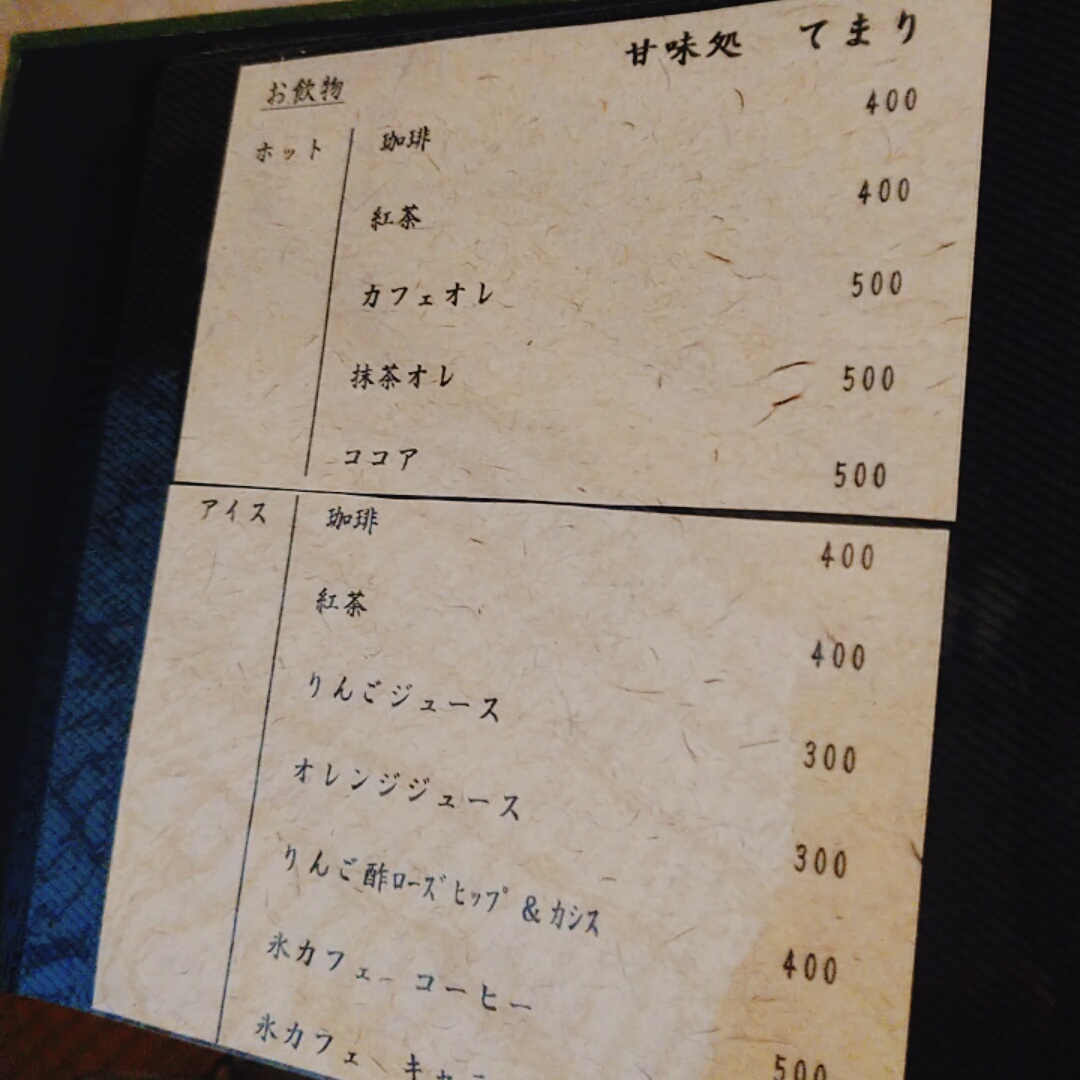 甘味処 てまり
お飲物
ホット 珈琲 400
紅茶 400
カフェオレ 500
抹茶オレ 500
ココア 500
アイス 珈琲 400
紅茶 400
りんごジュース 300
オレンジジュース 300
りんご酢ローズヒップ&カシス 400
氷カフェ コーヒー 500
氷カフェ